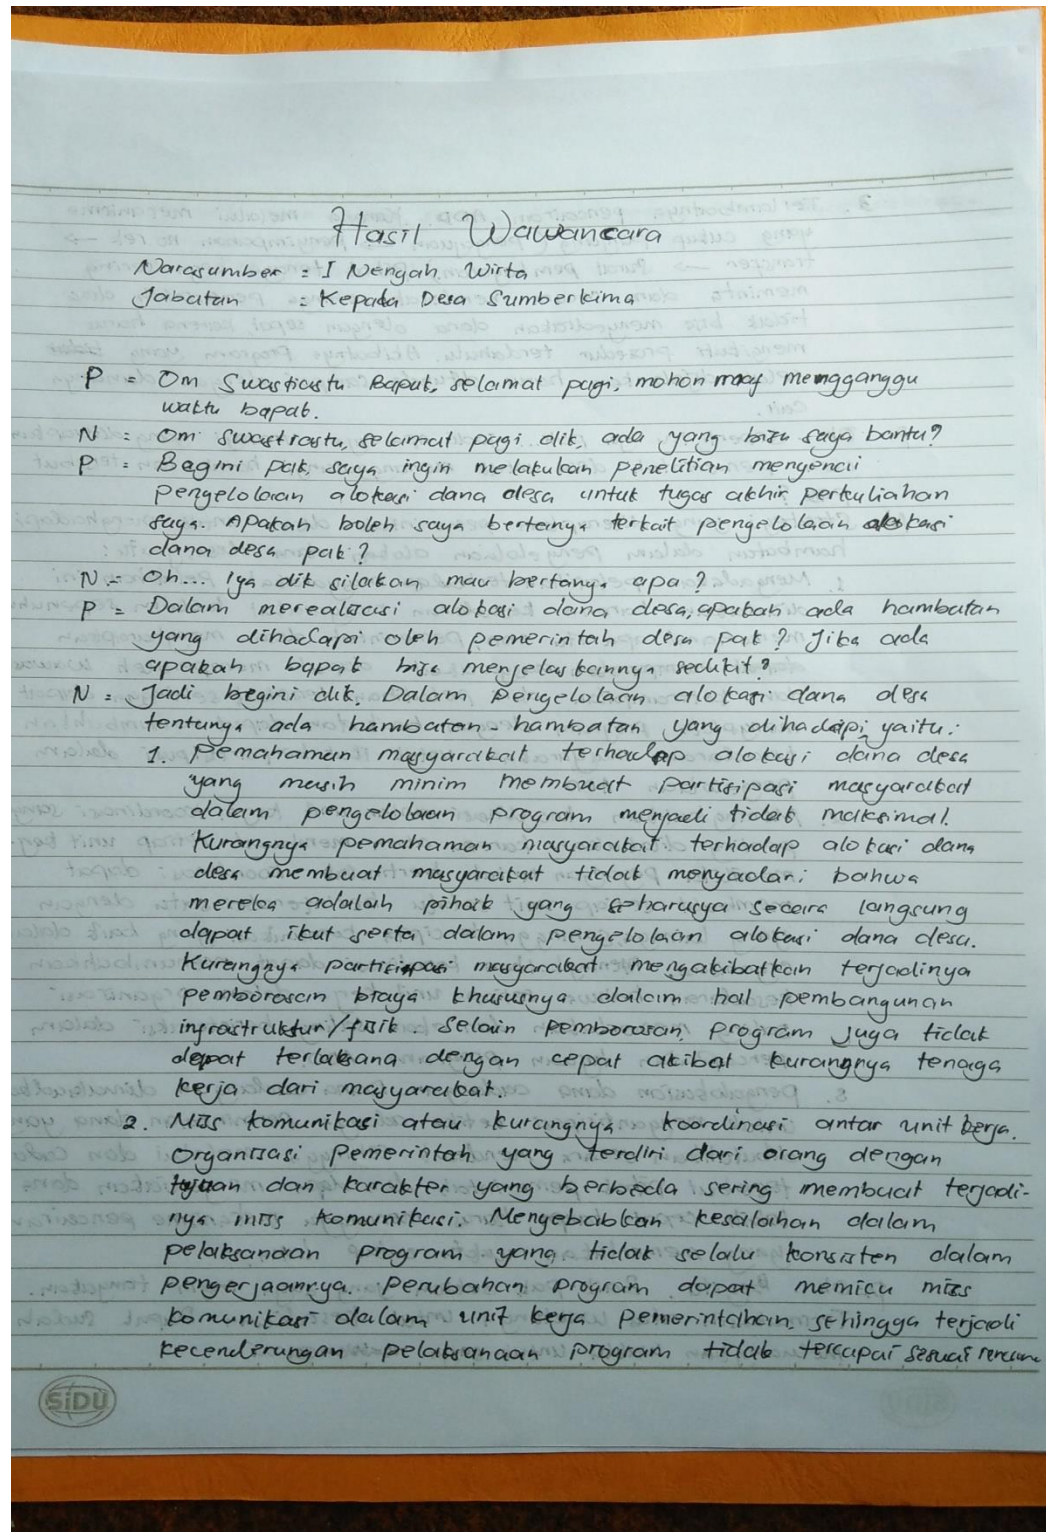 Hasil Wawancara
Narasumber = I Nengah Wirta
Jabatan : Kepada Desa Sumberkima
P = Om Swastiastu Bapak, selamat pagi, mohon maaf mengganggu
waktu bapak.
N = Om Swastiastu, selamat pagi dik, ada yang bisa saya bantu?
P = Begini pak, saya ingin melakukan penelitian mengenai
pengelolaan alokasi dana desa untuk tugas akhir perkuliahan
saya. Apakah boleh saya bertanya terkait pengelolaan alokasi
dana desa pak?
N = Oh... Iya dik silakan mau bertanya apa?
P = Dalam merealisasi alokasi dana desa, apakah ada hambatan
yang dihadapi oleh pemerintah desa pak? Jika ada
apakah bapak bisa menjelaskannya sedikit?
N = Jadi begini dik, Dalam pengelolaan alokasi dana desa
tentunya ada hambatan-hambatan yang dihadapi yaitu:
1. Pemahaman masyarakat terhadap alokasi dana desa
yang masih minim membuat partisipasi masyarakat
dalam pengelolaan program menjadi tidak maksimal.
Kurangnya pemahaman masyarakat terhadap alokasi dana
desa membuat masyarakat tidak menyadari bahwa
mereka adalah pihak yang seharusya secara langsung
dapat ikut serta dalam pengelolaan alokasi dana desa.
Kurangnya partisipasi masyarakat mengakibatkan terjadinya
pemborosan biaya khususnya dalam hal pembangunan
infrastruktur/fisik. Selain pemborosan, program juga tidak
dapat terlaksana dengan cepat akibat kurangnya tenaga
kerja dari masyarakat.
2. Miss komunikasi atau kurangnya koordinasi antar unit kerja.
Organisasi pemerintah yang terdiri dari orang dengan
tujuan dan karakter yang berbeda sering membuat terjadi-
nya miss komunikasi. Menyebabkan kesalahan dalam
pelaksanaan program yang tidak selalu konsisten dalam
pengerjaannya. Perubahan program dapat memicu miss
komunikasi dalam unit kerja pemerintahan, sehingga terjadi
kecenderungan pelaksanaan program tidak tercapai sesuai rencana
SiDU